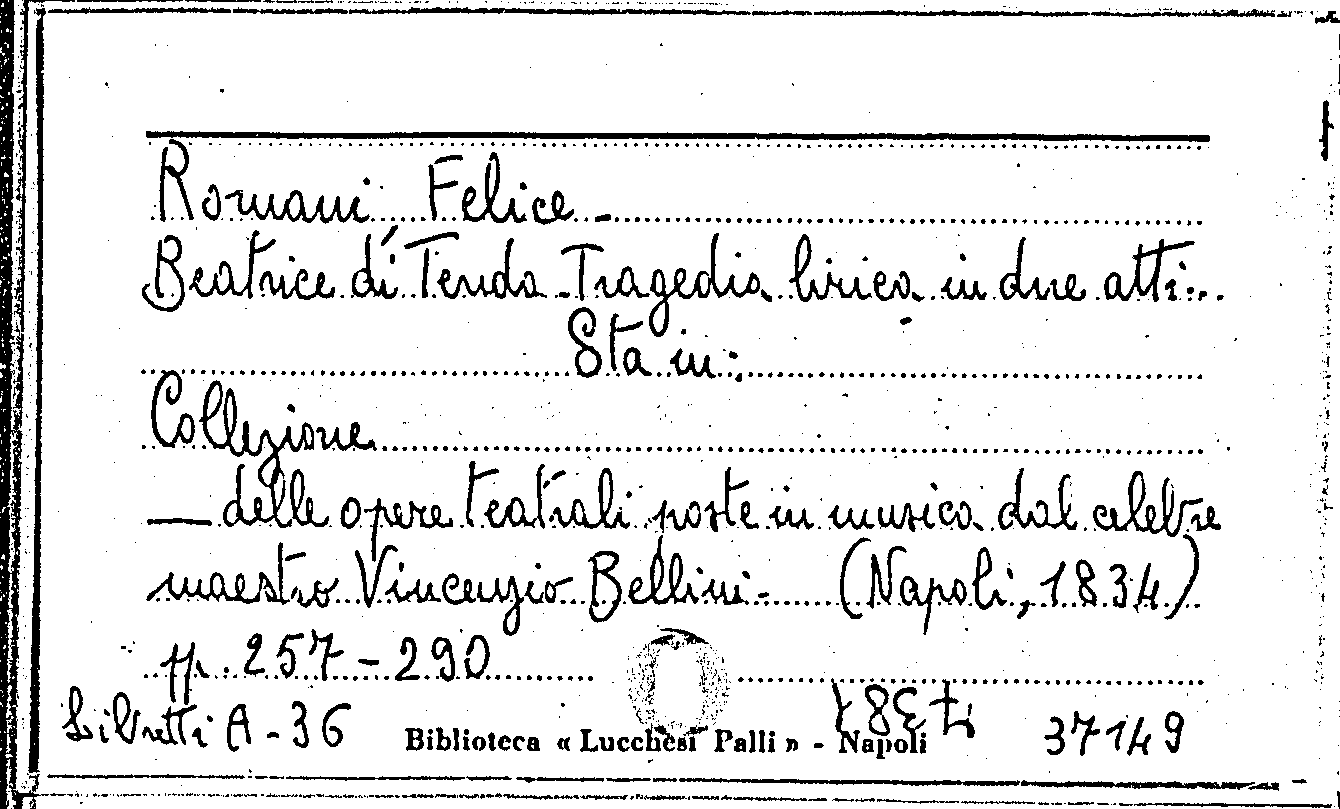 Romani, Felice -
Beatrice di Tenda - Tragedia lirica in due atti...
Sta in:
Collezione
— delle opere teatrali poste in musica dal celebre
maestro Vincenzio Bellini - (Napoli, 1834)
pp. 257-290
Libretti A-36
Biblioteca « Lucchesi Palli » - Napoli
37149